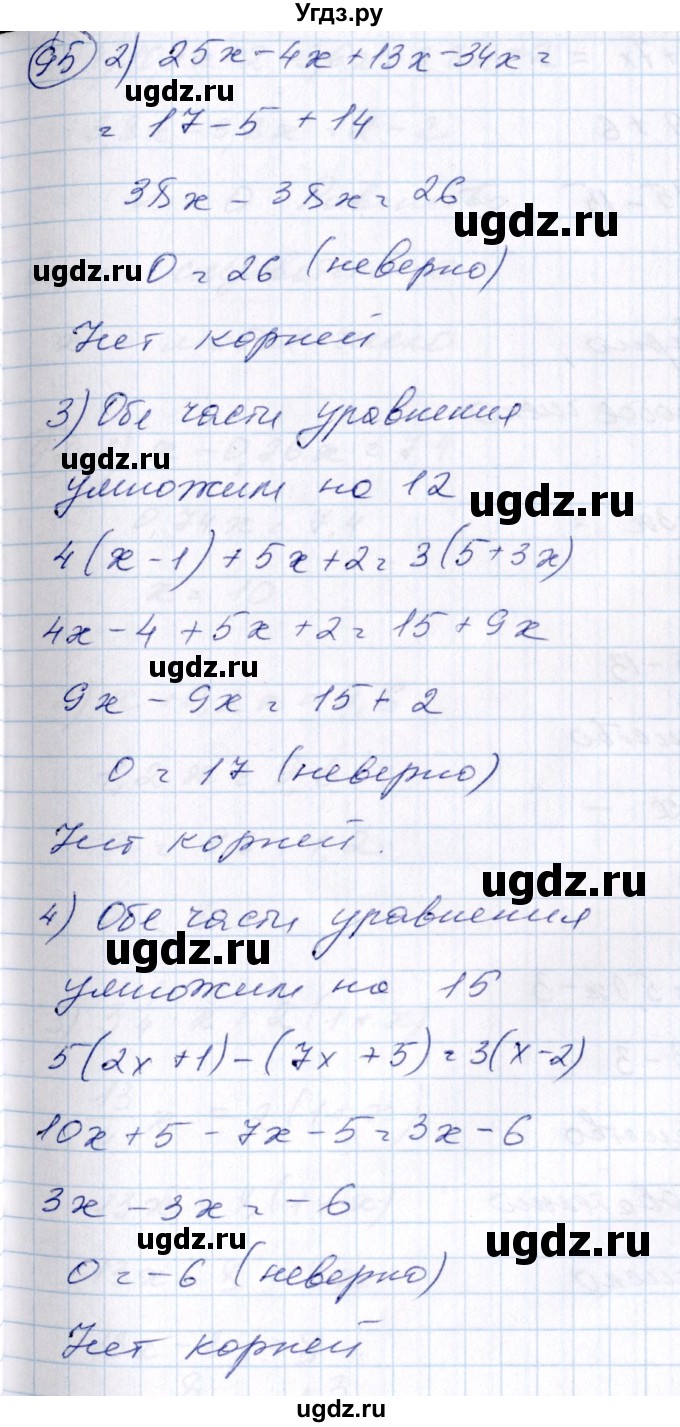 Угдз.ру
95 2) 25x - 4x + 13x - 34x =
ugdz.ru
= 17 - 5 + 14
38x - 38x = 26
ugdz.ru
ugdz.ru 0 = 26 (неверно)
Нет корней
3) Обе части уравнения
ugdz.ru
умножим на 12
ugdz.ru
4(x - 1) + 5x + 2 = 3(5 + 3x)
4x - 4 + 5x + 2 = 15 + 9x
ugdz.ru
9x - 9x = 15 + 2
0 = 17 (неверно)
Нет корней.
ugdz.ru
4) Обе части уравнения
ugdz.ru
умножим на 15
5(2x + 1) - (7x + 5) = 3(x - 2)
10x + 5 - 7x - 5 = 3x - 6
3x - 3x = -6
ugdz.ru
ugdz.ru
0 = -6 (неверно)
Нет корней
ugdz.ru